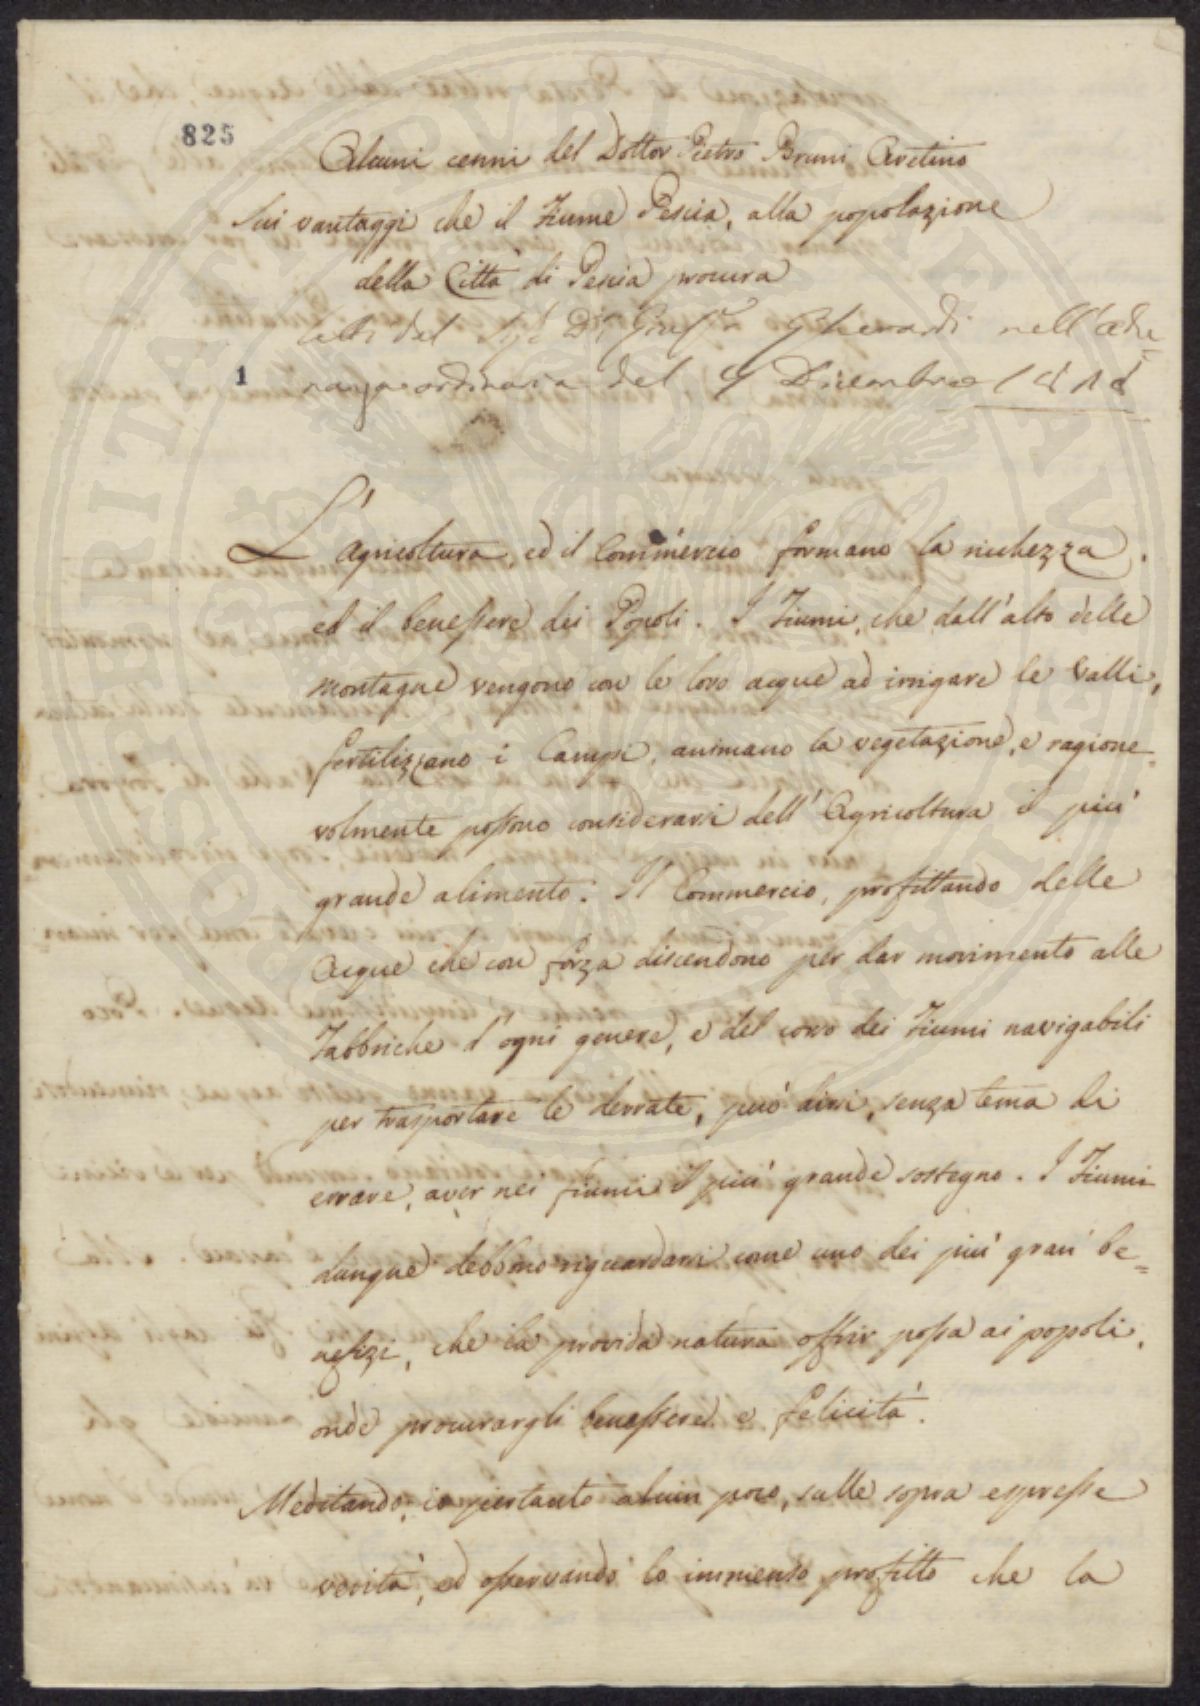 825
Alcuni cenni del Dottor Pietro Bruni Aretino
Sui vantaggi che il Fiume Pescia, alla popolazione
della Città di Pescia procura
Letti del Sig. D. Gherardi nell'Adu=
1
nanza ordinaria del 9 Dicembre 1818
L'Agricoltura, ed il Commercio formano la ricchezza,
ed il benessere dei Popoli. I Fiumi, che dall'alto delle
montagne vengono con le loro acque ad irrigare le Valli,
fertilizzano i Campi, animano la vegetazione, e ragione=
volmente possono considerarsi dell'Agricoltura il più
grande alimento. Il Commercio, profittando delle
Acque che con forza discendono per dar movimento alle
Fabbriche d'ogni genere, e del corso dei Fiumi navigabili
per trasportare le derrate, può dirsi, senza tema di
errare, aver nei fiumi il più grande sostegno. I Fiumi
dunque debbono riguardarsi come uno dei più gran be=
nefizi, che la provida natura offrir possa ai popoli,
onde procurargli benessere e felicità.
Meditando io pertanto alcun poco, sulle sopra espresse
verità, ed osservando lo immenso profitto che la